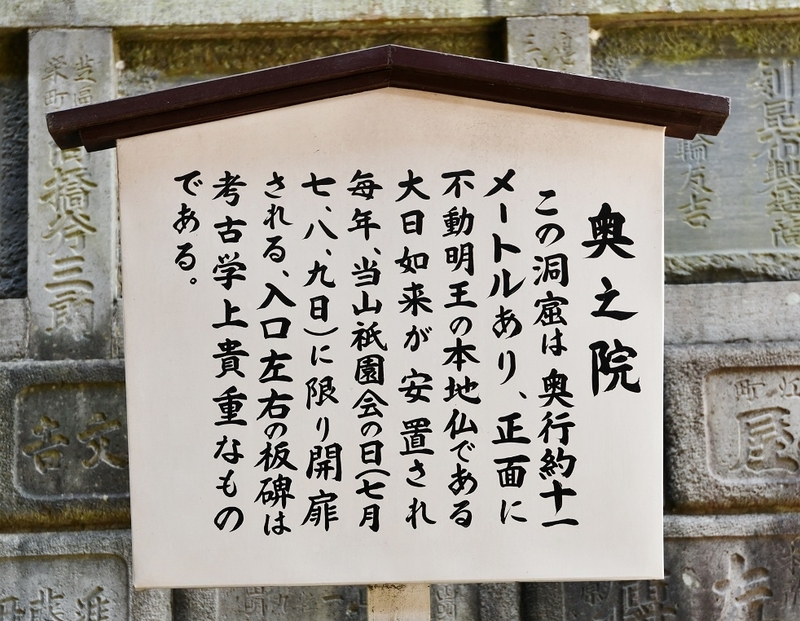 奥之院
この洞窟は奥行約十一
メートルあり、正面に
不動明王の本地仏である
大日如来が安置され
毎年、当山祇園会の日(七月
七、八、九日)に限り開扉
される、入口左右の板碑は
考古学上貴重なもの
である。
橋谷三郎